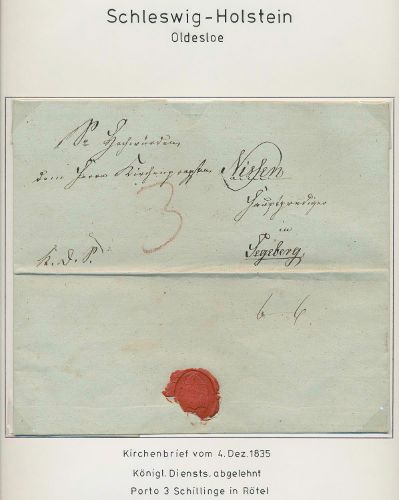 Schleswig-Holstein
Oldesloe
Sr Hochwürden
dem Herrn Kirchenpropsten Nissen
Hauptprediger
in
3
K. d. S. Segeberg
Kirchenbrief vom 4. Dez. 1835
Königl. Diensts. abgelehnt
Porto 3 Schillinge in Rötel